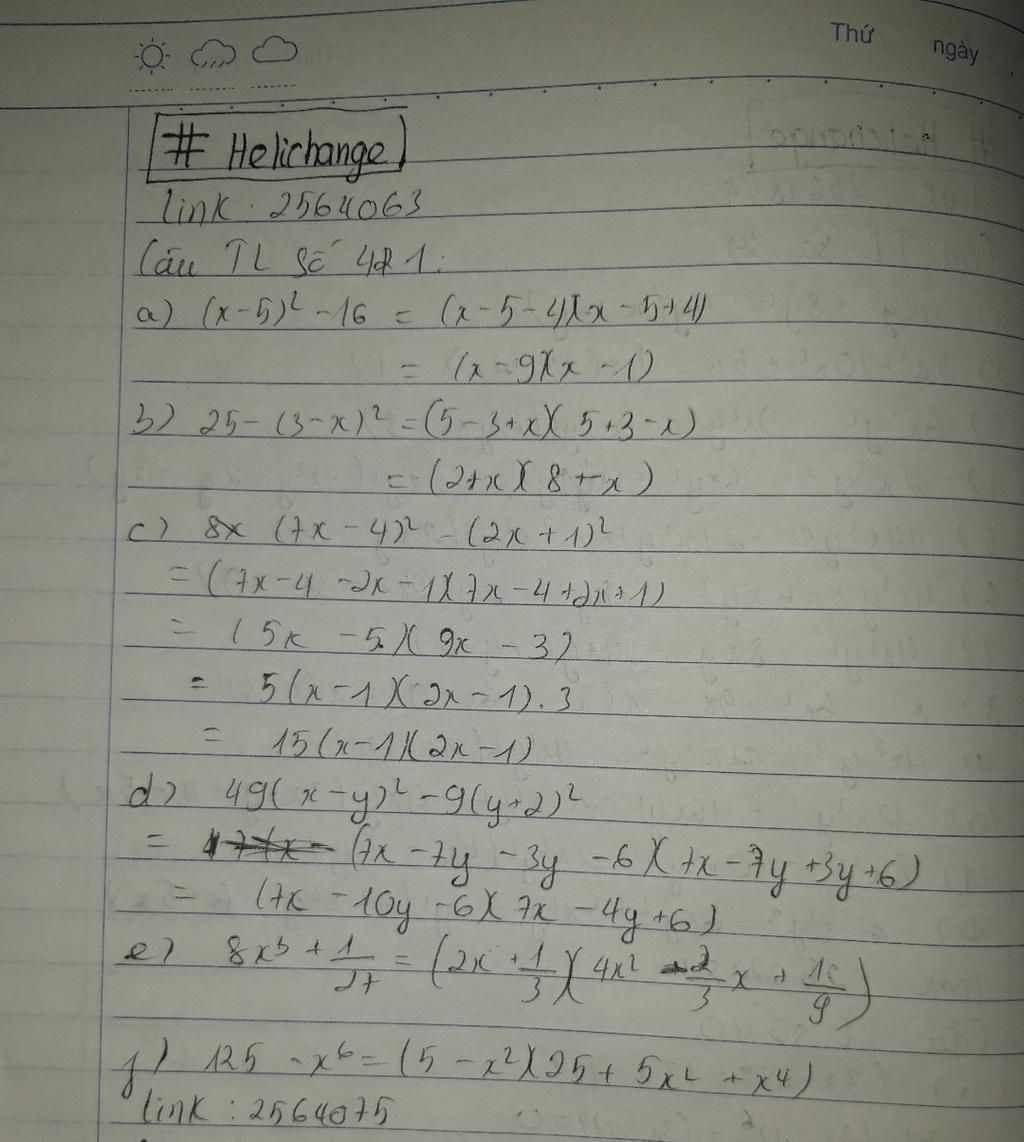 Thứ ngày
# Helichange
link: 2564063
Câu TL số 421:
a) (x-5)² - 16 = (x-5-4)(x-5+4)
= (x-9)(x-1)
b) 25-(3-x)² = (5-3+x)(5+3-x)
= (2+x)(8-x)
c) (7x-4)² - (2x+1)²
= (7x-4-2x-1)(7x-4+2x+1)
= (5x-5)(9x-3)
= 5(x-1)(2x-1).3
= 15(x-1)(2x-1)
d) 49(x-y)² - 9(y+2)²
= (7x-7y-3y-6)(7x-7y+3y+6)
= (7x-10y-6)(7x-4y+6)
e) 8x³ + 1/27 = (2x + 1/3)(4x² - 2/3 x + 1/9)
f) 125 - x⁶ = (5-x²)(25+5x²+x⁴)
link: 2564075